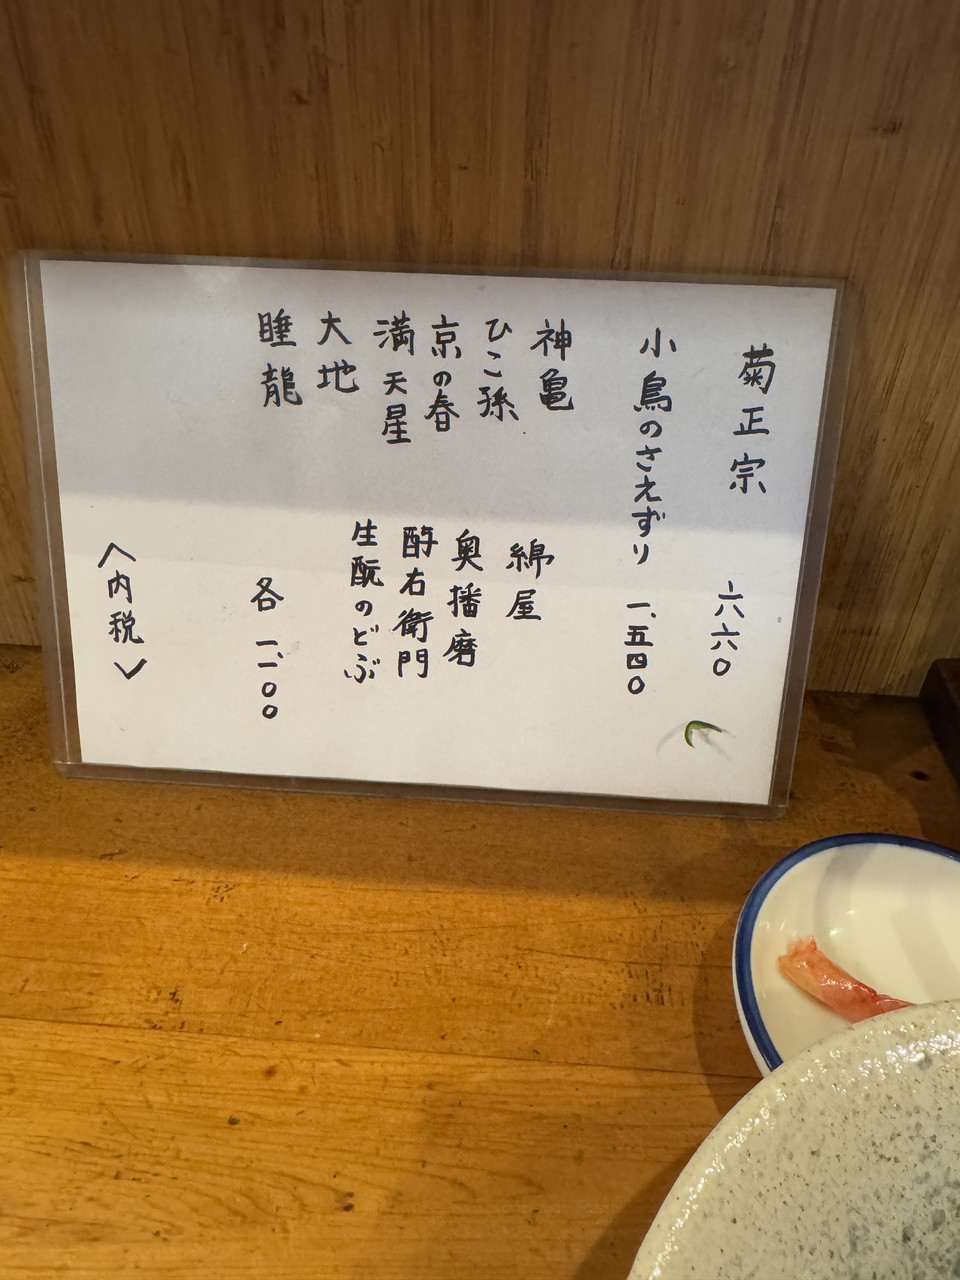 菊正宗 六六〇
小鳥のさえずり 一、五四〇
神亀
ひこ孫
京の春
満天星
大地
睡龍
綿屋
奥播磨
酔右衛門
生酛のどぶ
各 一、一〇〇
〈内税〉